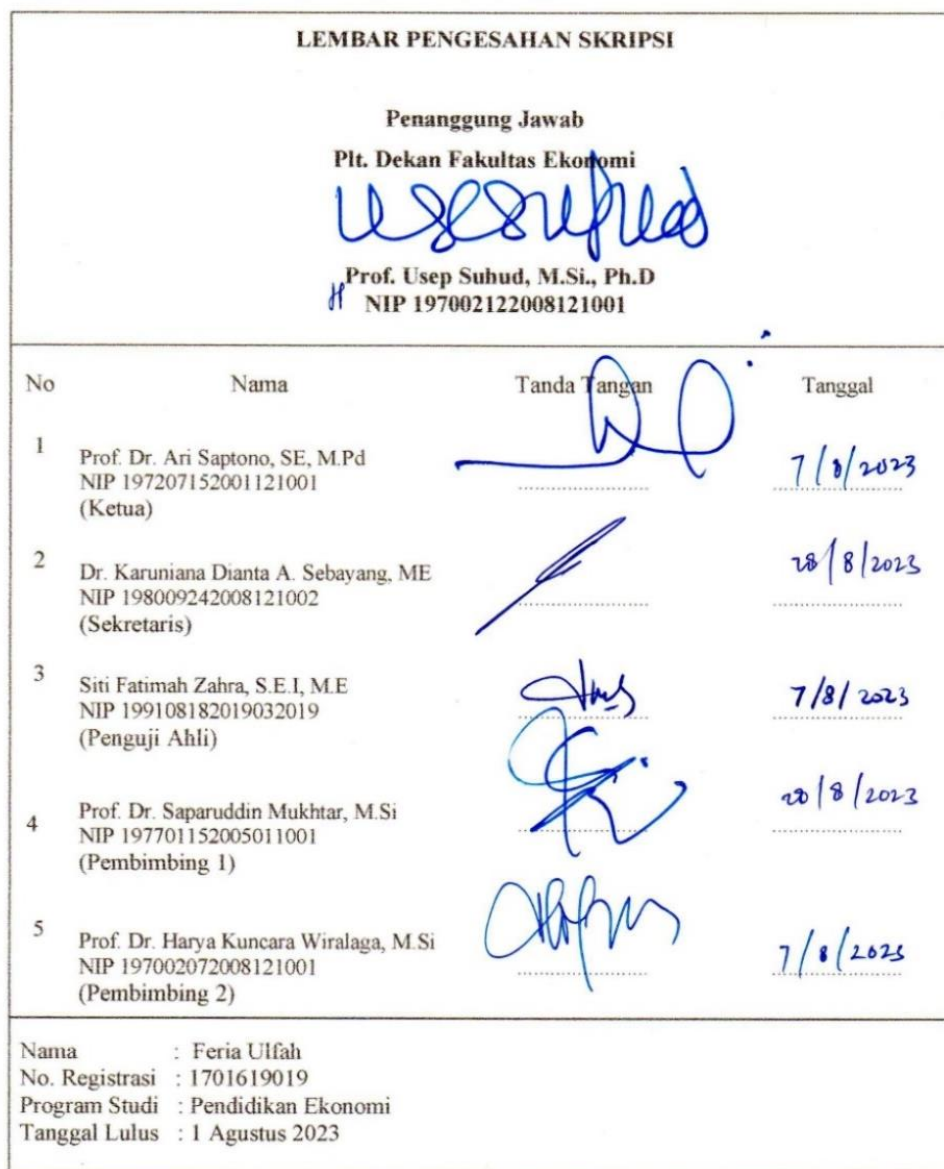 LEMBAR PENGESAHAN SKRIPSI
Penanggung Jawab
Plt. Dekan Fakultas Ekonomi
Prof. Usep Suhud, M.Si., Ph.D
NIP 197002122008121001
No Nama Tanda Tangan Tanggal
1 Prof. Dr. Ari Saptono, SE, M.Pd
NIP 197207152001121001 7/8/2023
(Ketua)
2 Dr. Karuniana Dianta A. Sebayang, ME 28/8/2023
NIP 198009242008121002
(Sekretaris)
3 Siti Fatimah Zahra, S.E.I, M.E 7/8/2023
NIP 199108182019032019
(Penguji Ahli)
4 Prof. Dr. Saparuddin Mukhtar, M.Si
NIP 197701152005011001
(Pembimbing 1)
5 Prof. Dr. Harya Kuncara Wiralaga, M.Si
NIP 197002072008121001 7/8/2023
(Pembimbing 2)
Nama : Feria Ulfah
No. Registrasi : 1701619019
Program Studi : Pendidikan Ekonomi
Tanggal Lulus : 1 Agustus 2023